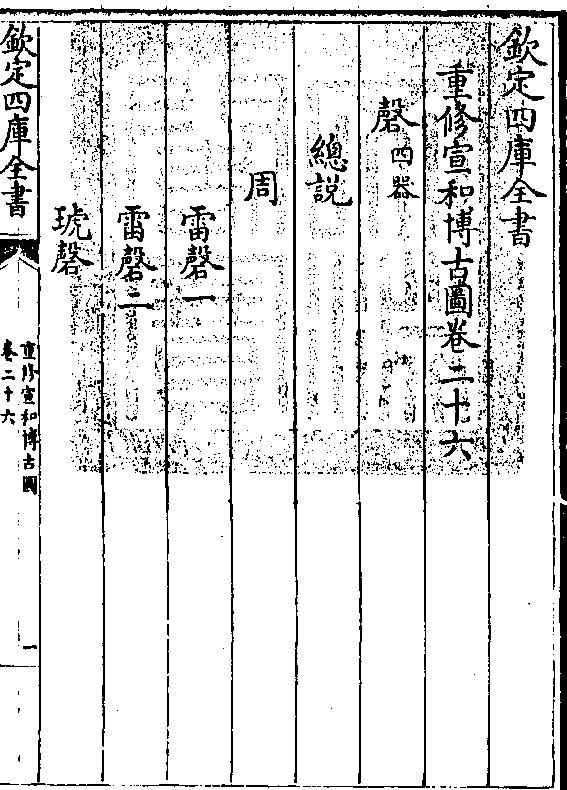 欽定四庫全書
重修宣和博古圖卷二十六
磬四器
總説
周
雷磬一
雷磬二
琥磬
欽定四庫全書
重修宣和博古圖
卷二十六
一